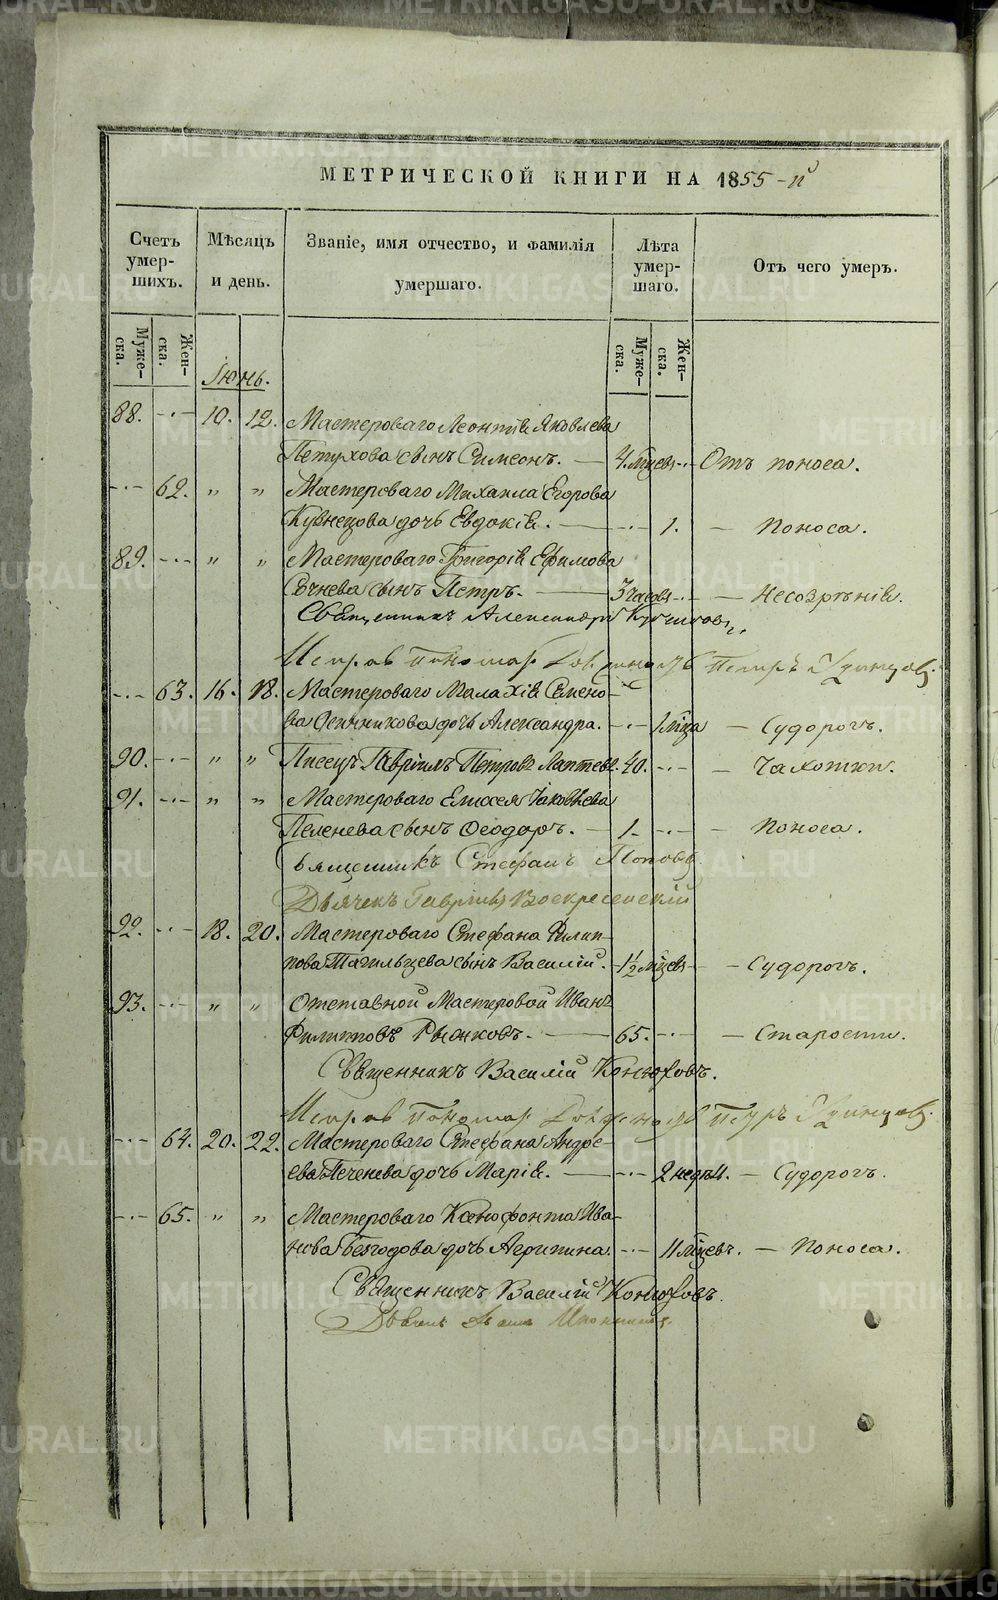 МЕТРИЧЕСКОЙ КНИГИ НА 1855-й
Счетъ умер-шихъ. Мѣсяцъ и день. Званіе, имя отчество, и фамилія умершаго. Лѣта умер-шаго. Отъ чего умеръ.
Муже-ска. Жен-ска. Муже-ска. Жен-ска.
Іюнь.
88. -·- 10. 12. Мастероваго Леонтія Яковлева
Петухова сынъ Симеонъ. — 4. мѣсев -·- Отъ поноса.
-·- 62. " " Мастероваго Михаила Егорова
Кузнецова дочь Евдокія. — -·- 1. — Поноса.
89. -·- " " Мастероваго Григорія Ефимова
сынъ Петръ. — 3 часовъ -·- — Несозрѣнія.
Священникъ Александръ
Исправ. пономар. должность Петръ
-·- 63. 16. 18. Мастероваго Малахія Семено-
ва Осинникова дочь Александра. -·- 1 мѣца — Судорогъ.
90. -·- " " Писецъ Гавріилъ Петровъ Лаптевъ. 40. -·- — Чахотки.
91. -·- " " Мастероваго Елисея Яковлева
Пеленева сынъ Ѳеодоръ. — 1. -·- — Поноса.
Священникъ Стефанъ Поповъ
Дьячекъ Гавріилъ Воскресенскій
92. -·- 18. 20. Мастероваго Стефана Филип-
пова Тагильцева сынъ Василій. 1½ мѣцевъ — Судорогъ.
93. -·- " " Отставной Мастеровой Иванъ
Филиповъ — 65. -·- — Старости.
Священникъ Василій Конюховъ.
Исправ. пономар. должность Петръ
-·- 64. 20. 22. Мастероваго Стефана Андре-
ева Печенева дочь Марія. — -·- 2 недѣл. — Судорогъ.
-·- 65. " " Мастероваго Ксенофонта Ива-
нова Безгодова дочь Агрипина. -·- 11 мѣцевъ. — Поноса.
Священникъ Василій Конюховъ.
METRIKI.GASO-URAL.RU